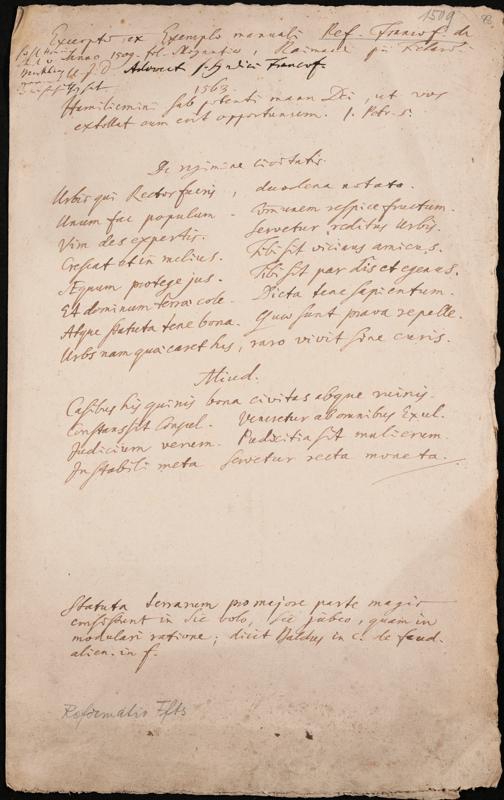 1509
Excerpta ex Exemplo manuali Ref. Francof. de
Anno 1509. fol. Moguntiæ,
U. J. D. Advocat. Francof.
1563.
Humiliemini sub potenti manu Dei, ut vos
exaltat cum erit opportunum. 1. Petr. 5.
De regimine civitatis.
Urbis qui Rector fueris, duodena notato.
Unum fac populum. Communem respice fructum.
Vim des expertis. Servetur reditus Urbis.
Crescat et in melius. Tibi sit vicinus amicus.
Æquum protege jus. Tibi sit par dis et egenus.
Et dominum terræ cole. Dicta tene sapientum.
Atque statuta tene bona. Quæ sunt prava repelle.
Urbs nam quæ caret his, raro vivit sine curis.
Aliud.
Casibus his quinis bona civitas absque ruinis.
Constans sit Consul. Veneretur ab omnibus Exul.
Judicium verum. Pudicitia sit mulierum.
Instabili meta servetur recta moneta.
Statuta terrarum pro majore parte magis
consistunt in sic volo, sic jubeo, quam in
modulari ratione; dicit Baldus in c. de feud.
alien. in f.
Reformatio Ffts